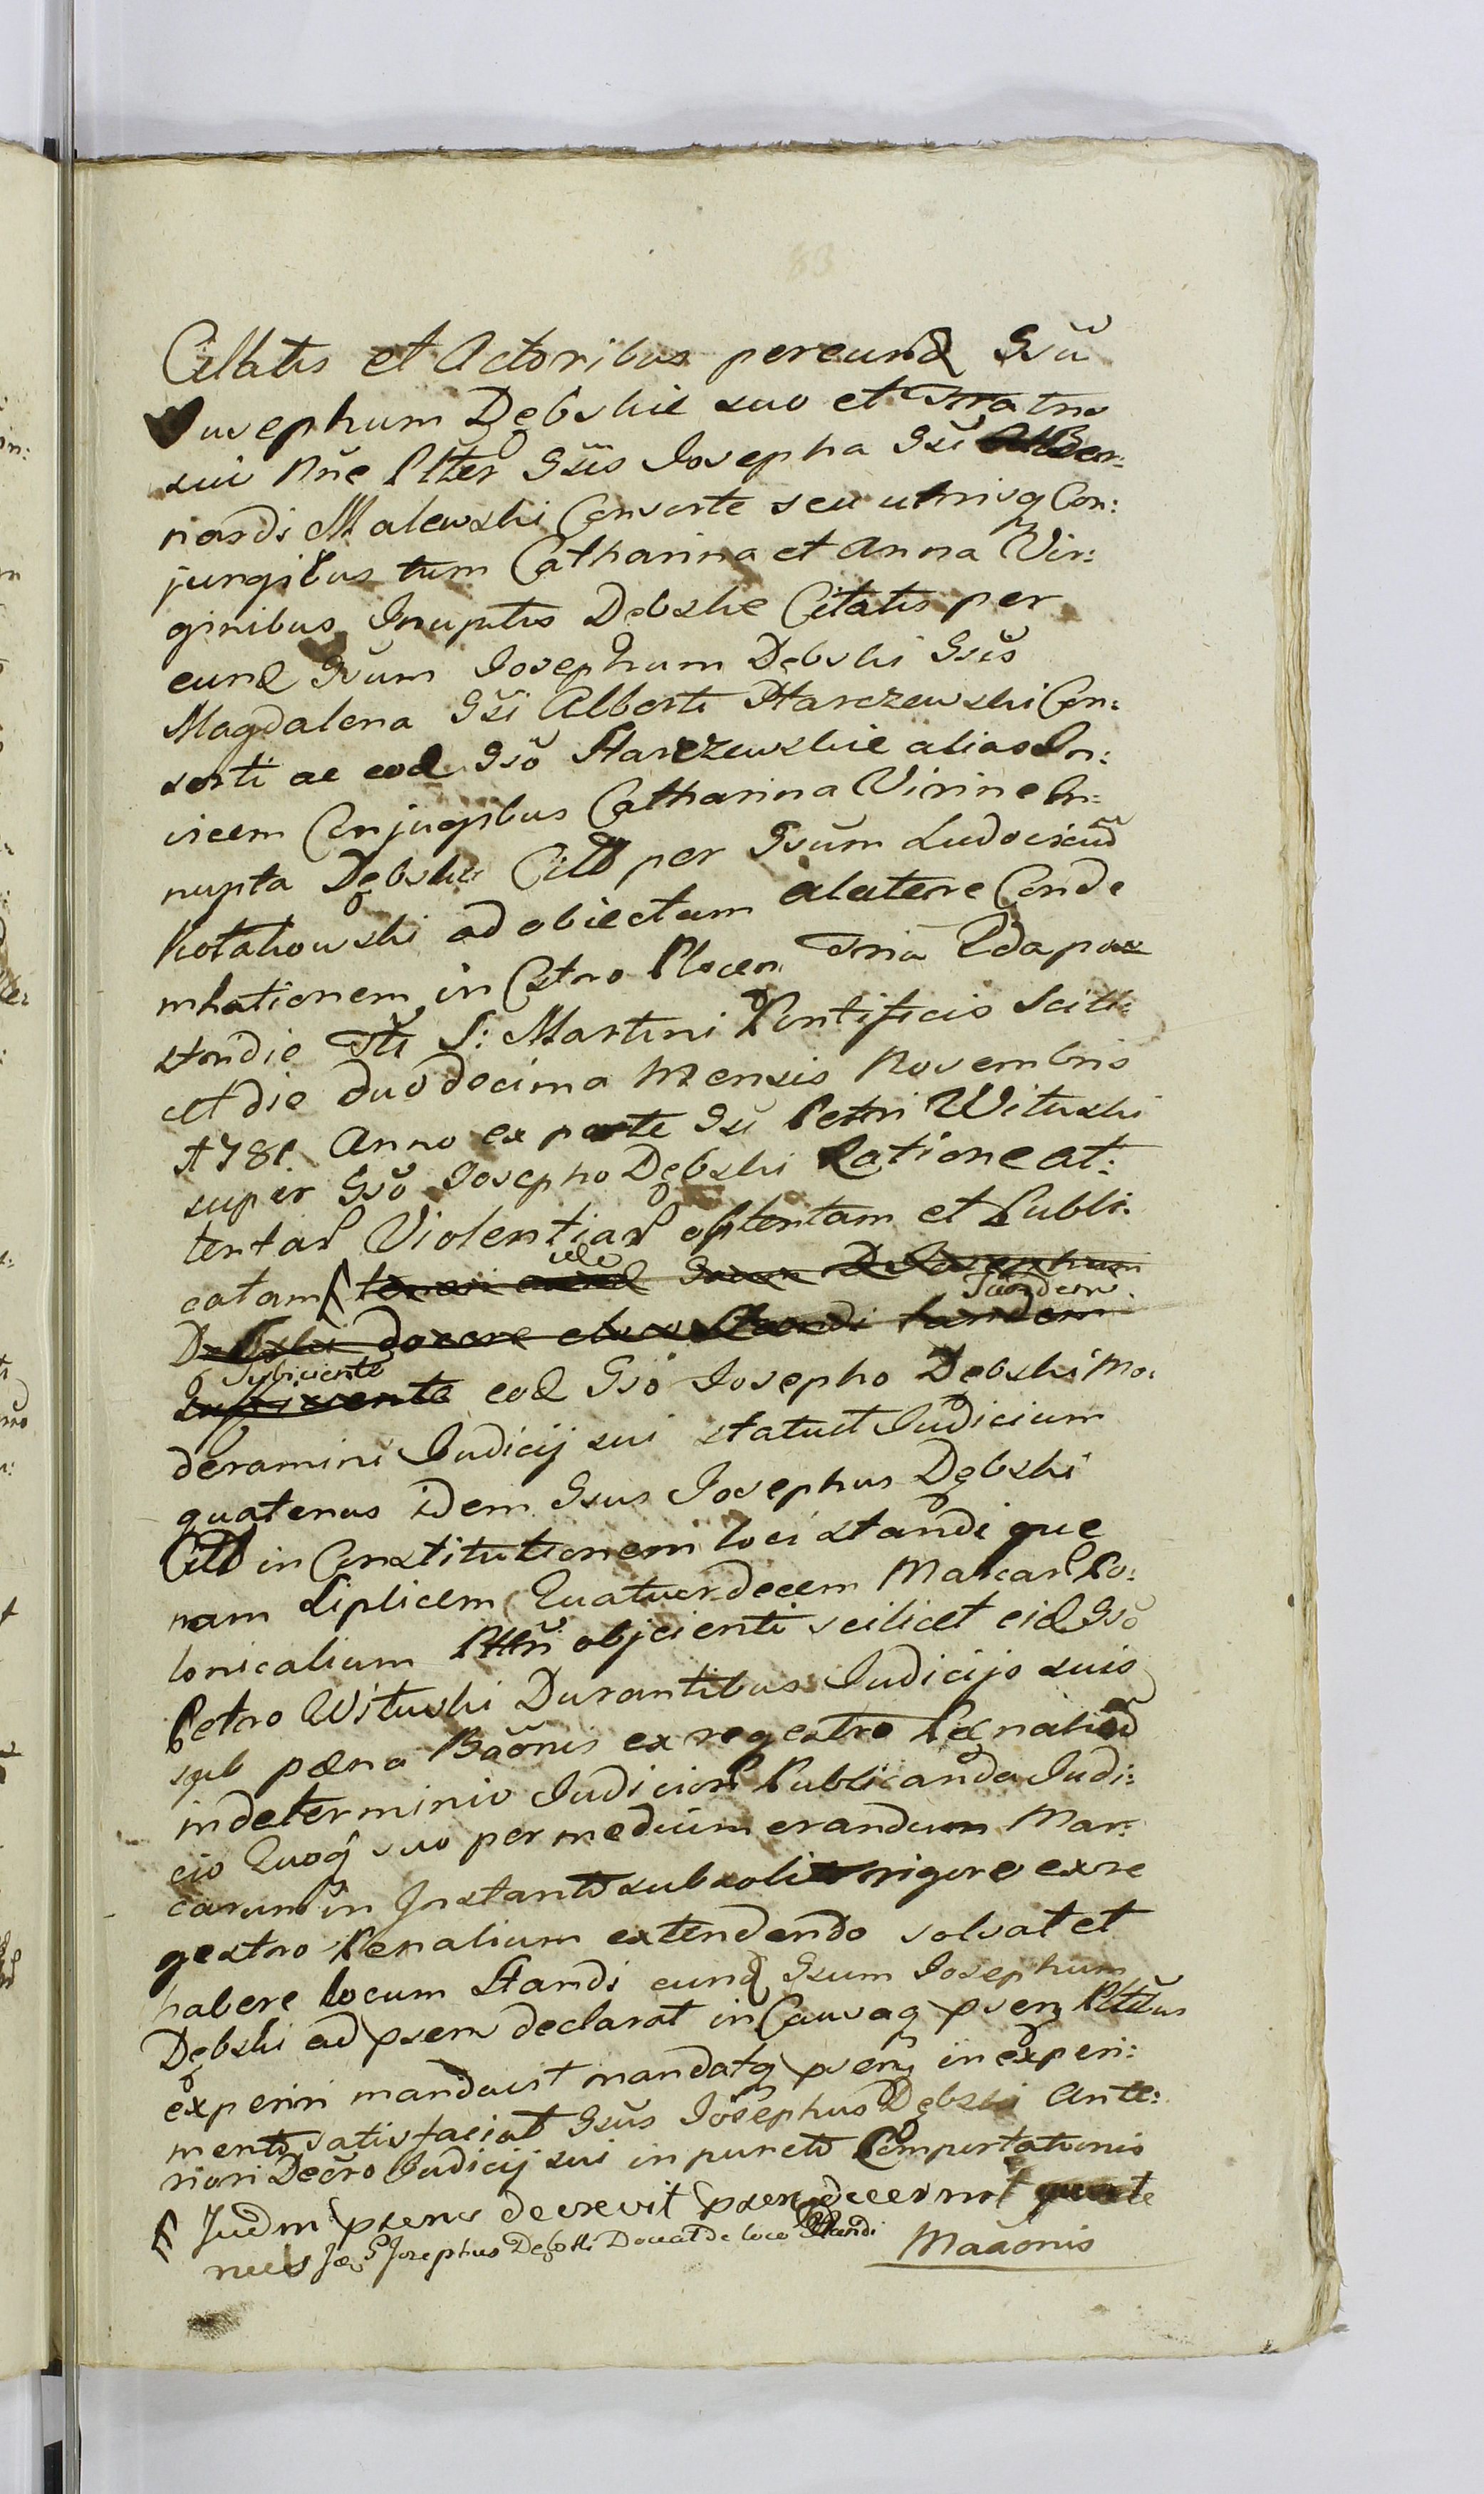 83
Citatis et Actoribus per eund Gsū
Josephum Dębskie suo et Fratris
sui Nñe Ptter Gsiis Josepha Gsi Ber:
nardi Malewski Consorte seu utrisq Con:
jungibus tum Catharina et Anna Vir:
ginibus Inuptis Debskie Citatis per
eund Gsum Josephum Dębski Gsis
Magdalena Gsi Alberti Starczewski Con:
sorti ac eod Gsō Starczewskie alias In:
vicem Conjugibus Catharina Virine In:
nupta Dębska Citt per Gsum Ludovicum
Kotakowski ad obiectam a latere Conde
mnationem in Cstro Plocen Fria
Sti S: Martini Pontificis Scilt:
et die duodecima Mensis Novembris
1781. Anno ex parte Gsi Petri Wituski
super Gsō Josepho Dębski Ratione at:
tentar Violentiar obtentam et Publi:
catam teneri eund Gsum D Josephum
Debski docere Standi tandem
Tandem
Subiiciente eod Gsō Josepho Debski Mo:
deramini Judicij sui statuit Judicium
quatenus idem Gsus Josephus Dębski
Citt in Constitutionem loci standi que
nam Liplicem Quatuordecem Marcar Po:
lonicalium Ptteri objcienti scilicet eid Gsō
Petro Wituski Durantibus Judicijs suis
sub pæna Bāōnis ex regestro Pænaliū
in determinio Judicior Publicanda Judi:
cio Quoq suo per medium erandum Mar:
carum in Instanti sub rigore ex re
gestro Penalium extendendo solvat et
habere locum Standi eund Gsum Josephum
Dębski ad psem declarat in Causaq psen Ptitus
experiri mandavit mandatq psenj in experi:
mento satisfaciat Gsus Josephus Dębski Ante:
riori Decro Judicij sui in puncto Comportationis
Judm psens decrevit psenq decernit quate
nus Josephus Debski Doceat de loco Standi
Maāonis